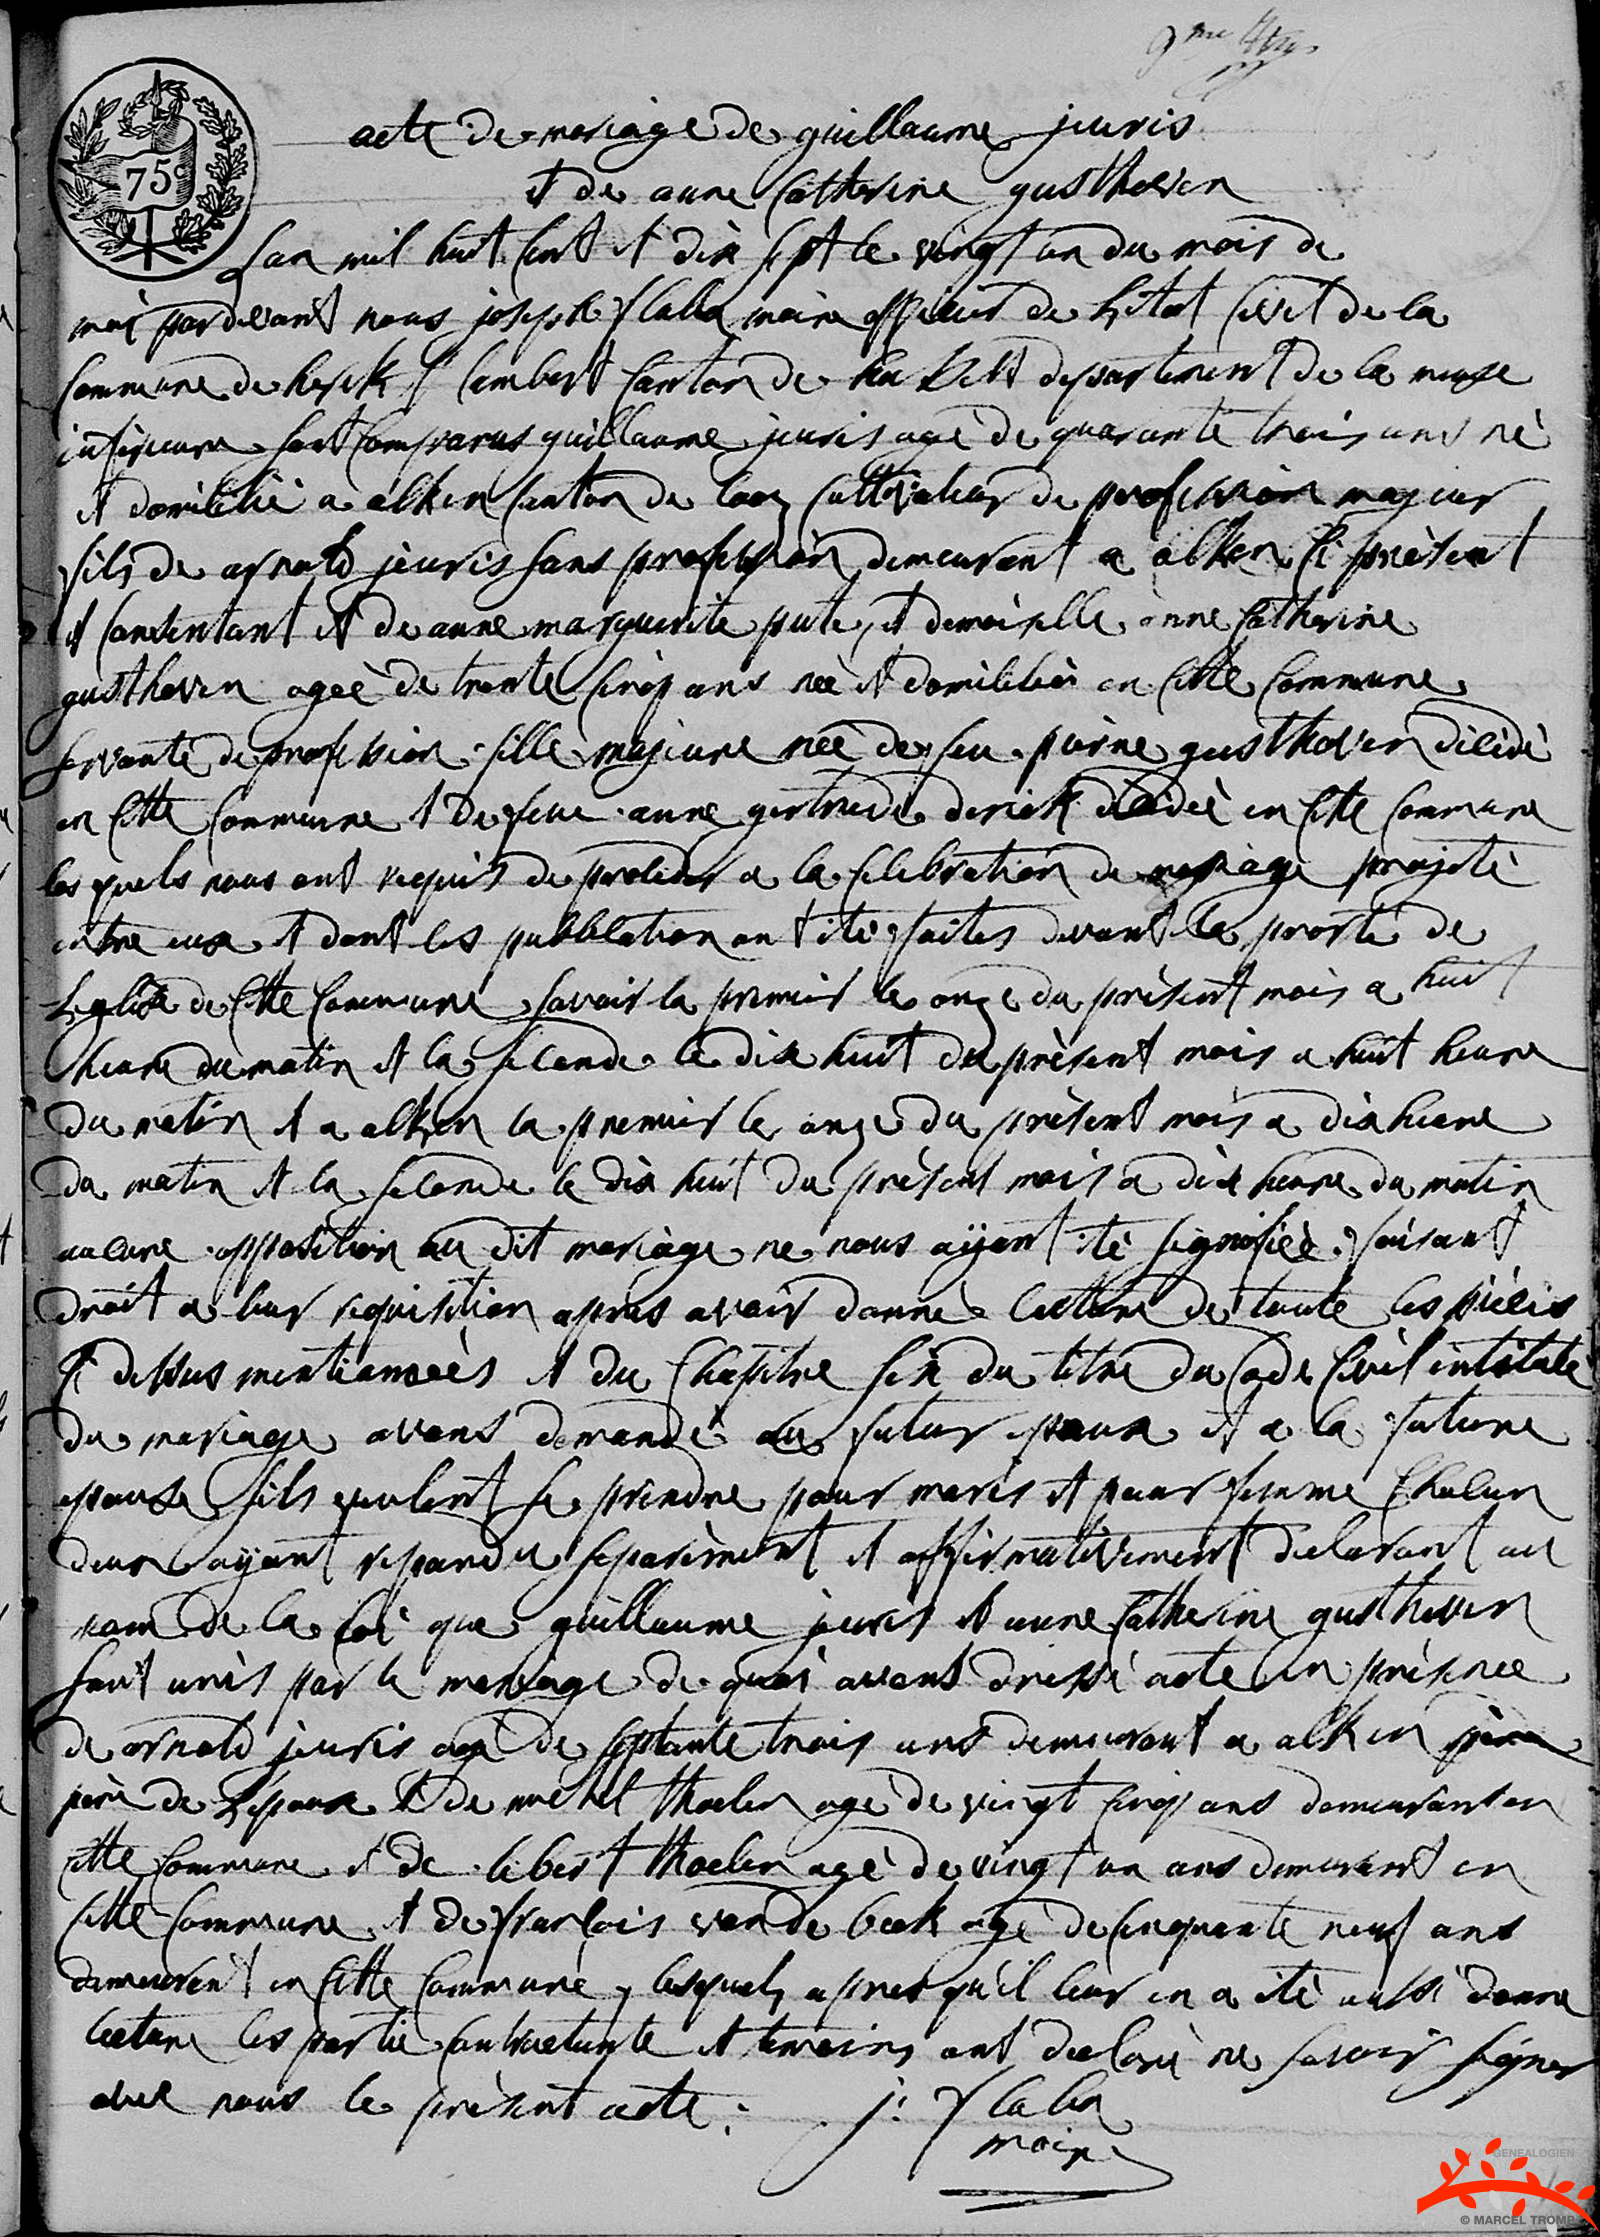 75c
acte de mariage de guillaume jeuris
et de anne Catherine gusthoven
Lan mil huit Cent et dix sept le vingt un du mois de
mai par devant nous joseph maire officier de L'etat Civil de la
Commune de herck st lambert Canton de hasselt departement de la meuse
inferieure sont Comparus guillaume jeuris agé de quarante trois ans né
et domicilié a alken Canton de looz Cultivateur de profession majeur
fils de arnold jeuris sans profession demeurant a alken Ci present
et Consentant et de anne marguerite puts, et demoiselle anne Catherine
gusthoven ageé de trente Cinq ans neé et domicilieé en Cette Commune
servante de profession fille majeure neé de feu pierre gusthoven décédé
en Cette Commune et de feue anne gertrude derick décédeé en Cette Commune
les quels nous ont requis de proceder a la Celebration de mariage projeté
entre eux et dont les publication ont ité faites devant la porte de
L'eglise de Cette Commune savoir la premier le onze du présent mois a huit
heure du matin et la seconde le dix huit du présent mois a huit heure
du matin et a alken la premier le onze du présent mois a dix heure
du matin et la seconde le dix huit du présent mois a dix heure du matin
aucune opposition au dit mariage ne nous aÿant ité signifiée faisant
droit a leur requisition apres avoir donné lecture de toute les pièces
Ci dessus mentionneés et du Chapitre six du titre du Code Civil intitulé
du mariage avons demandé au futur epoux et a la future
epouse sils veulent se prendre pour maris et pour femme Chacun
deux aÿant repondu separément et affirmativement declarant au
nom de la loi que guillaume jeuris et anne Catherine gusthoven
sont unis par le mariage de quoi avons dressé acte en présence
de arnold jeuris agé de septante trois ans demeurant a alken
père de L'epoux et de michel thoelen agé de vingt Cinq ans demeurant en
Cette Commune et de libert thoelen agé de vingt un ans demeurant en
Cette Commune et de francois vande beek agé de Cinquante neuf ans
demeurent en Cette Commune, lesquels apres qu'il leur en a ité aussi donné
lecture les partie Contractante et temoins ont declaré ne savoir signer
avec nous le présent acte.
j:
maire
GENEALOGIEN
© MARCEL TROMP